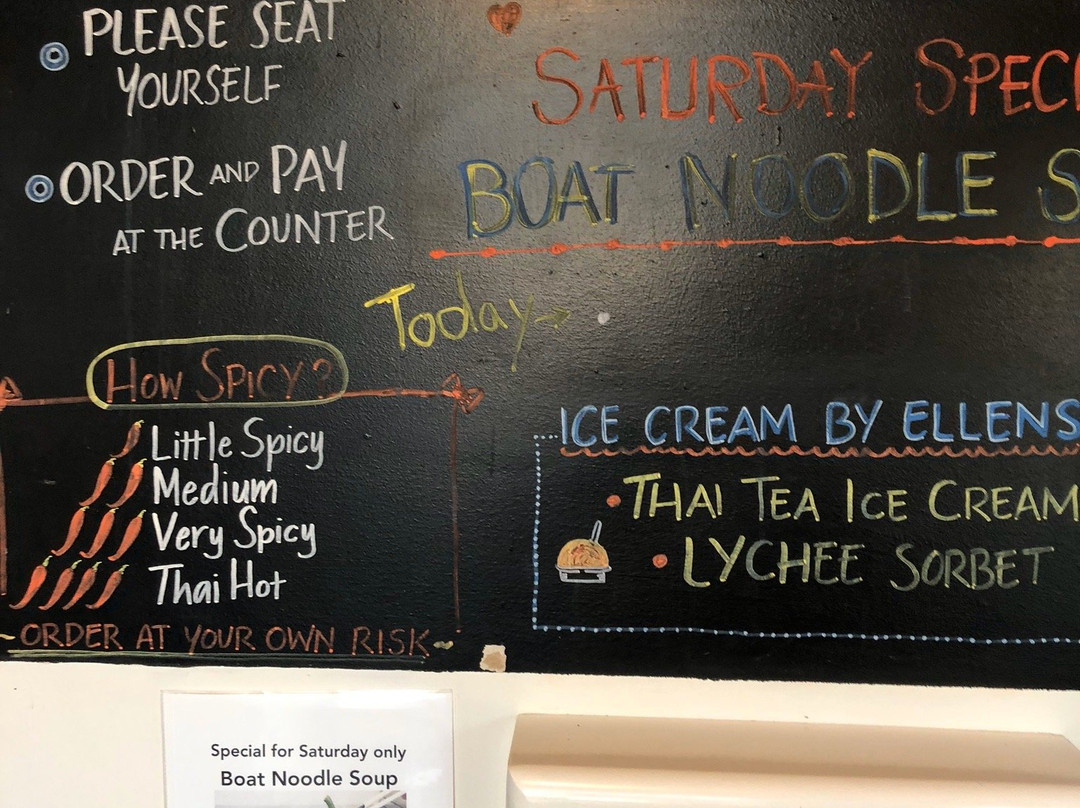 PLEASE SEAT
YOURSELF
ORDER AND PAY
AT THE COUNTER
SATURDAY SPECI
BOAT NOODLE S
Today →
How SPICY?
Little Spicy
Medium
Very Spicy
Thai Hot
ORDER AT YOUR OWN RISK
ICE CREAM BY ELLENS
THAI TEA ICE CREAM
LYCHEE SORBET
Special for Saturday only
Boat Noodle Soup